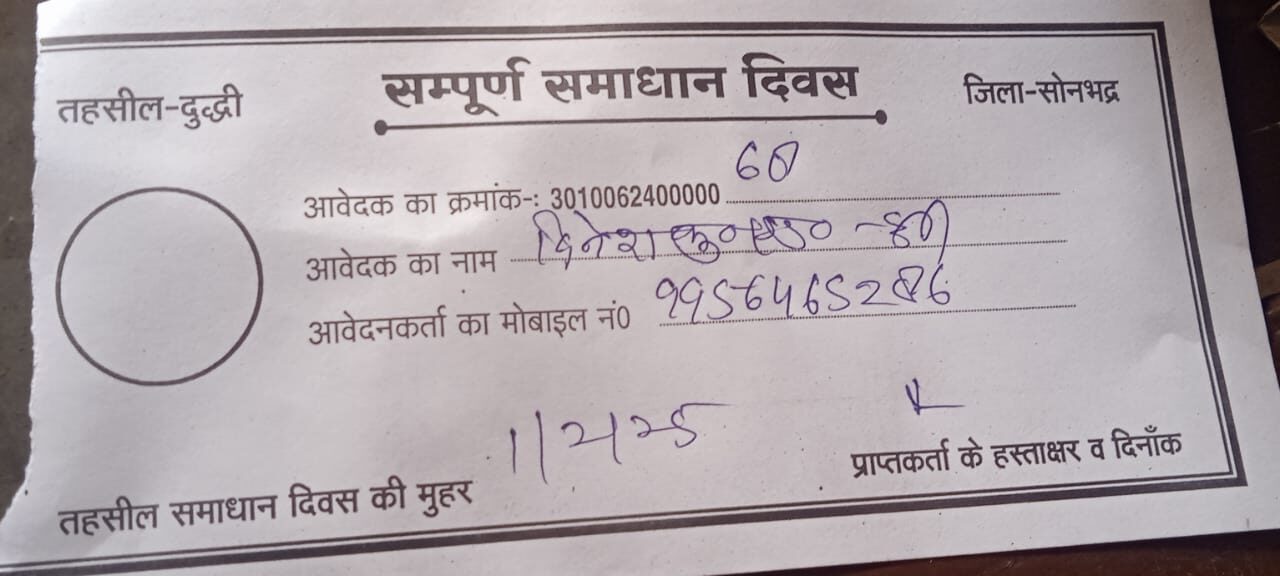 सम्पूर्ण समाधान दिवस
तहसील-दुद्धी
जिला-सोनभद्र
आवेदक का क्रमांक-: 3010062400000
आवेदक का नाम दिनेश कु०
आवेदनकर्ता का मोबाइल नं0
1/2/25
प्राप्तकर्ता के हस्ताक्षर व दिनाँक
तहसील समाधान दिवस की मुहर